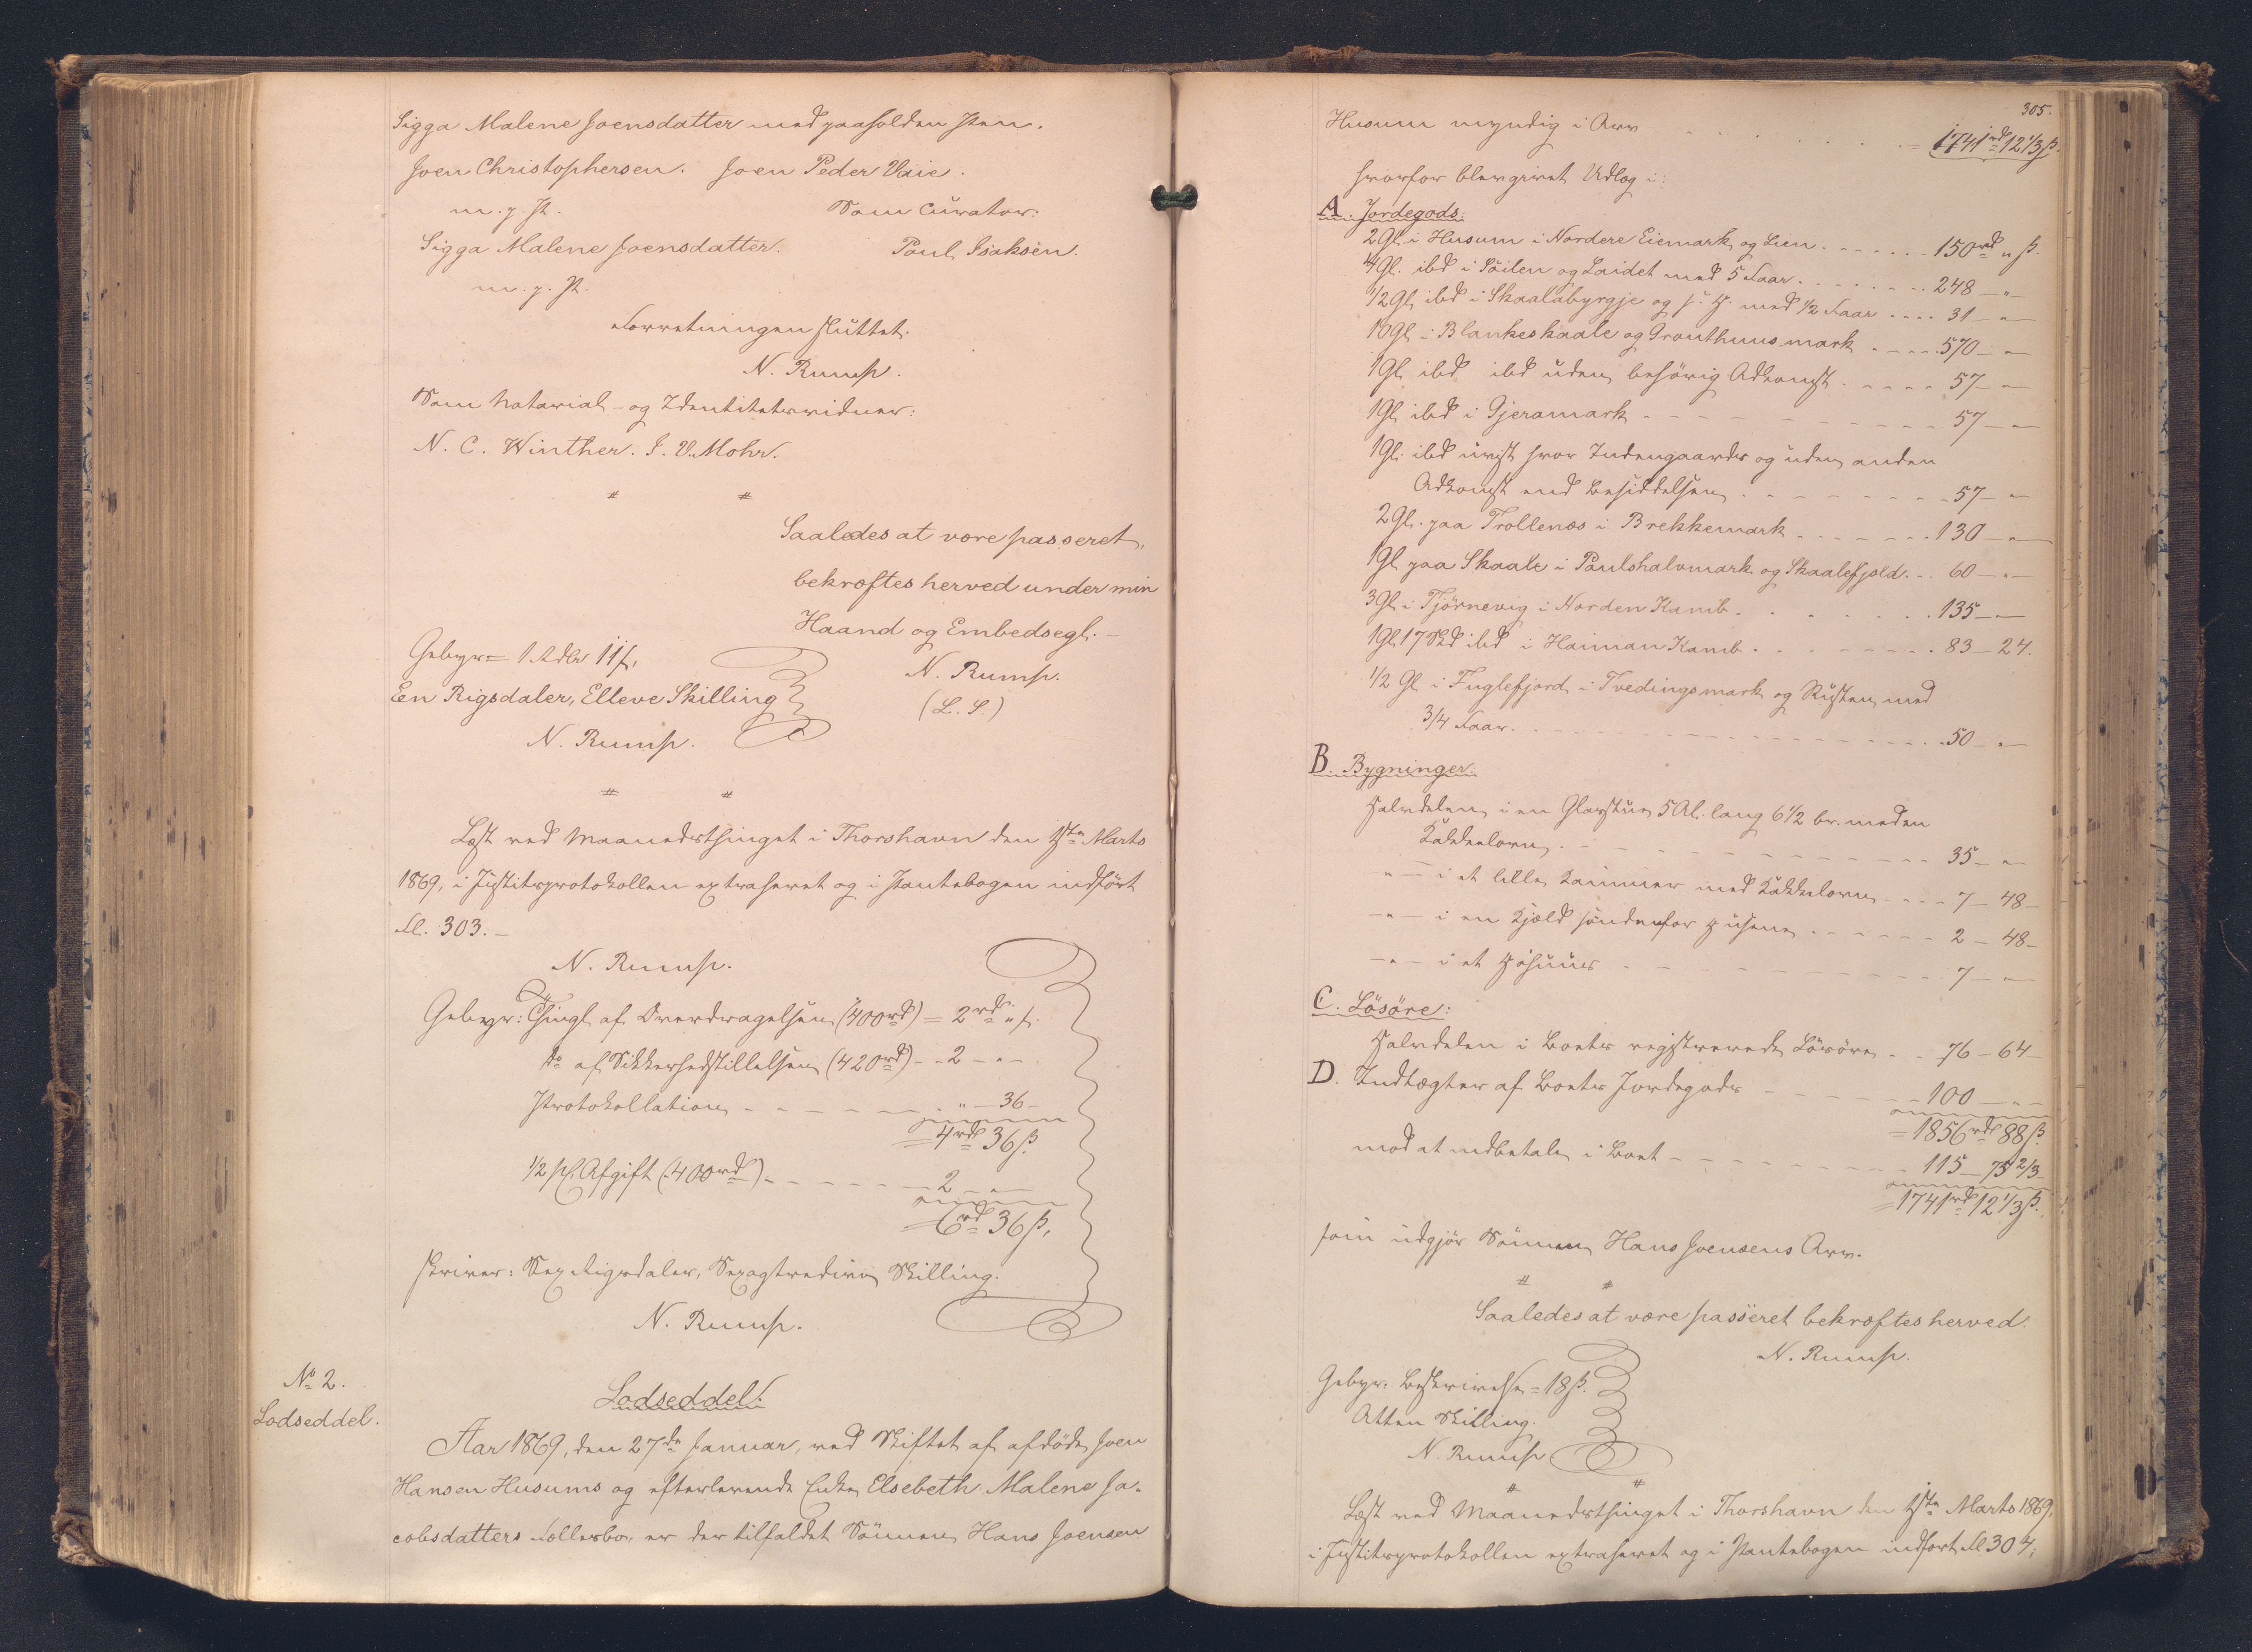 Sigga Malene Joensdatter med paaholden Pen.
Joen Christophersen. Joen Peder Vaie.
m. p. P. Som Curator:
Sigga Malene Joensdatter. Poul Isaksen.
m. p. P.
Forretningen sluttet.
N. Rump.
Som Notarial- og Identitetsvidner:
N. C. Winther. J. V. Mohr.
Saaledes at være passeret,
bekræftes herved under min
Haand og Embedsegl.
Gebyr = 1 Rdlr 11 ß,
N. Rump.
Een Rigsdaler, Elleve Skilling
(L. S.)
N. Rump.
Læst ved Maanedsthinget i Thorshavn den 1ste Marts
1869, i Justitsprotokollen extraheret og i Pantebogen indført
Fl. 303.
N. Rump.
Gebyr: Thingl. af Overdragelsen (400rd) = 2rd " ß.
do af Sikkerhedstillelsen (420rd) - - 2 - " -
Protokollation - - - - - " - 36 -
= 4rd 36 ß.
1/2 pCt. Afgift (400rd) - - - - - 2 - " -
= 6rd 36 ß.
skriver: Sex Rigsdaler, Sexogtredive Skilling.
N. Rump.
No 2.
Lodseddel.
Lodseddel:
Aar 1869, den 27de Januar, ved Skiftet af afdøde Joen
Hansen Husums og efterlevende Enke Elsebeth Malene Ja-
cobsdatters Fællesbo, er der tilfaldet Sönnen Hans Joensen
305.
Husum myndig i Arv . . . . . = 1741rd 12 1/3 ß.
hvorfor blev givet Udlæg i:
A. Jordegods:
2 Gl. i Husum i Nordere Eiemark og Lien - - - - - 150rd " ß.
4 Gl. ibd i Söilen og Laidet med 5 Faar - - - - - 248 - " -
1/2 Gl. ibd i Skaalabyrgje og s. H. med 1/2 Faar - - - - 31 - " -
10 Gl. i Blankeskaale og Gronthuusmark - - - - 570 - " -
1 Gl. ibd ibd uden behörig Adkomst - - - - - 57 - " -
1 Gl. ibd i Gjeramark - - - - - - 57 - " -
1 Gl. ibd uvist hvor Indengaards og uden anden
Adkomst end Besiddelsen - - - - - - 57 - " -
2 Gl. paa Trollenæs i Brekkemark - - - - - - 130 - " -
1 Gl. paa Skaale i Poulshalvmark og Skaalefjeld - - 60 - " -
3 Gl. i Tjörnevig i Norden Kamb - - - - - 135 - " -
1 Gl. 17 Skd ibd i Haiman Kamb - - - - - 83 - 24.
1/2 Gl. i Fuglefjord i Tvedingsmark og Rusten med
3/4 Faar - - - - - - - - 50 - " -
B. Bygninger:
Halvdelen i en Glarstue 5 Al. lang 6 1/2 br. med en
Kakkelovn - - - - - - - 35 - " -
- " - i et lille Kammer med Kakkelovn - - - - 7 - 48 -
- " - i en Kjeld søndenfor Husene - - - - - 2 - 48 -
- " - i et Höhuus - - - - - - 7 - " -
C. Lösöre:
Halvdelen i Boets registrerede Lösöre - - 76 - 64 -
D. Indtægter af Boets Jordegods - - - - - 100 - " -
= 1856rd 88 ß.
mod at indbetale i Boet - - - - - 115 - 75 2/3 -
= 1741rd 12 1/3 ß.
som udgjör Sönnen Hans Joensens Arv.
Saaledes at være passeret bekræftes herved.
N. Rump.
Gebyr: Beskrivelse = 18 ß.
Atten Skilling.
N. Rump
Læst ved Maanedsthinget i Thorshavn den 1ste Marts 1869,
i Justitsprotokollen extraheret og i Pantebogen indfört Fl 304.